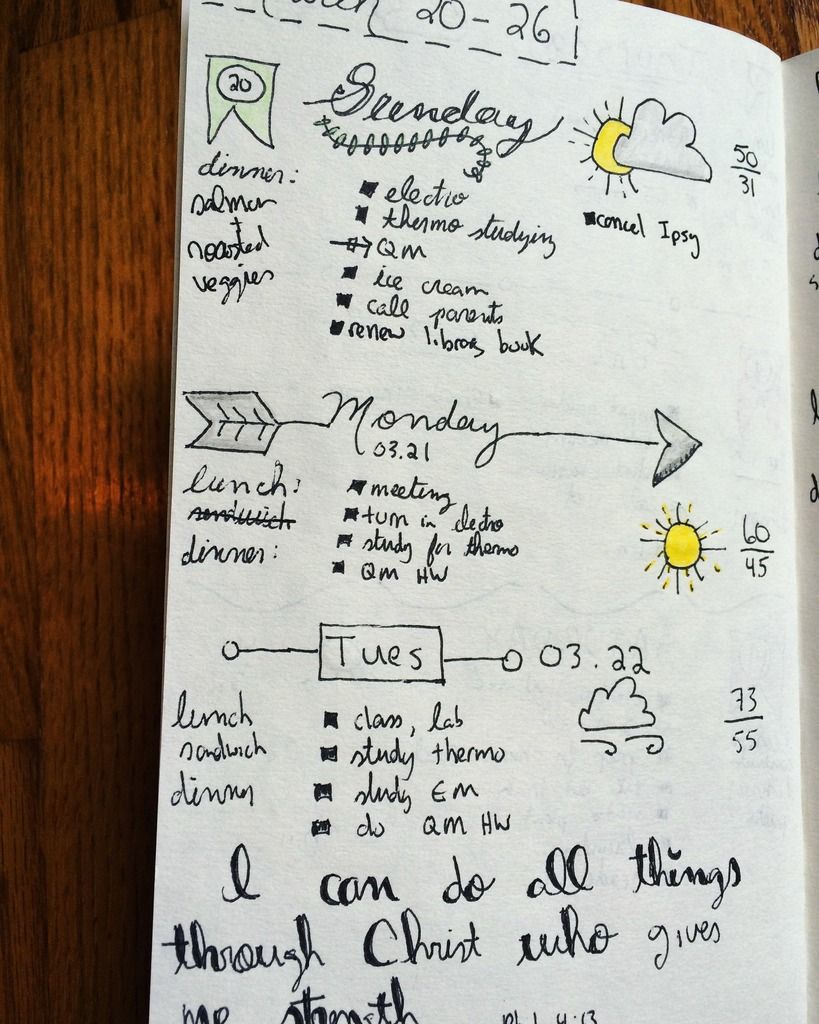 March 20-26
20
Sunday
50
31
dinner:
salmon
+
roasted
veggies
electro
thermo studying
QM
ice cream
call parents
renew library book
cancel Ipsy
Monday
03.21
lunch:
sandwich
dinner:
meeting
turn in electro
study for thermo
QM HW
60
45
Tues
03.22
73
55
lunch
sandwich
dinner
class, lab
study thermo
study EM
do QM HW
I can do all things
through Christ who gives
me strength
4:13